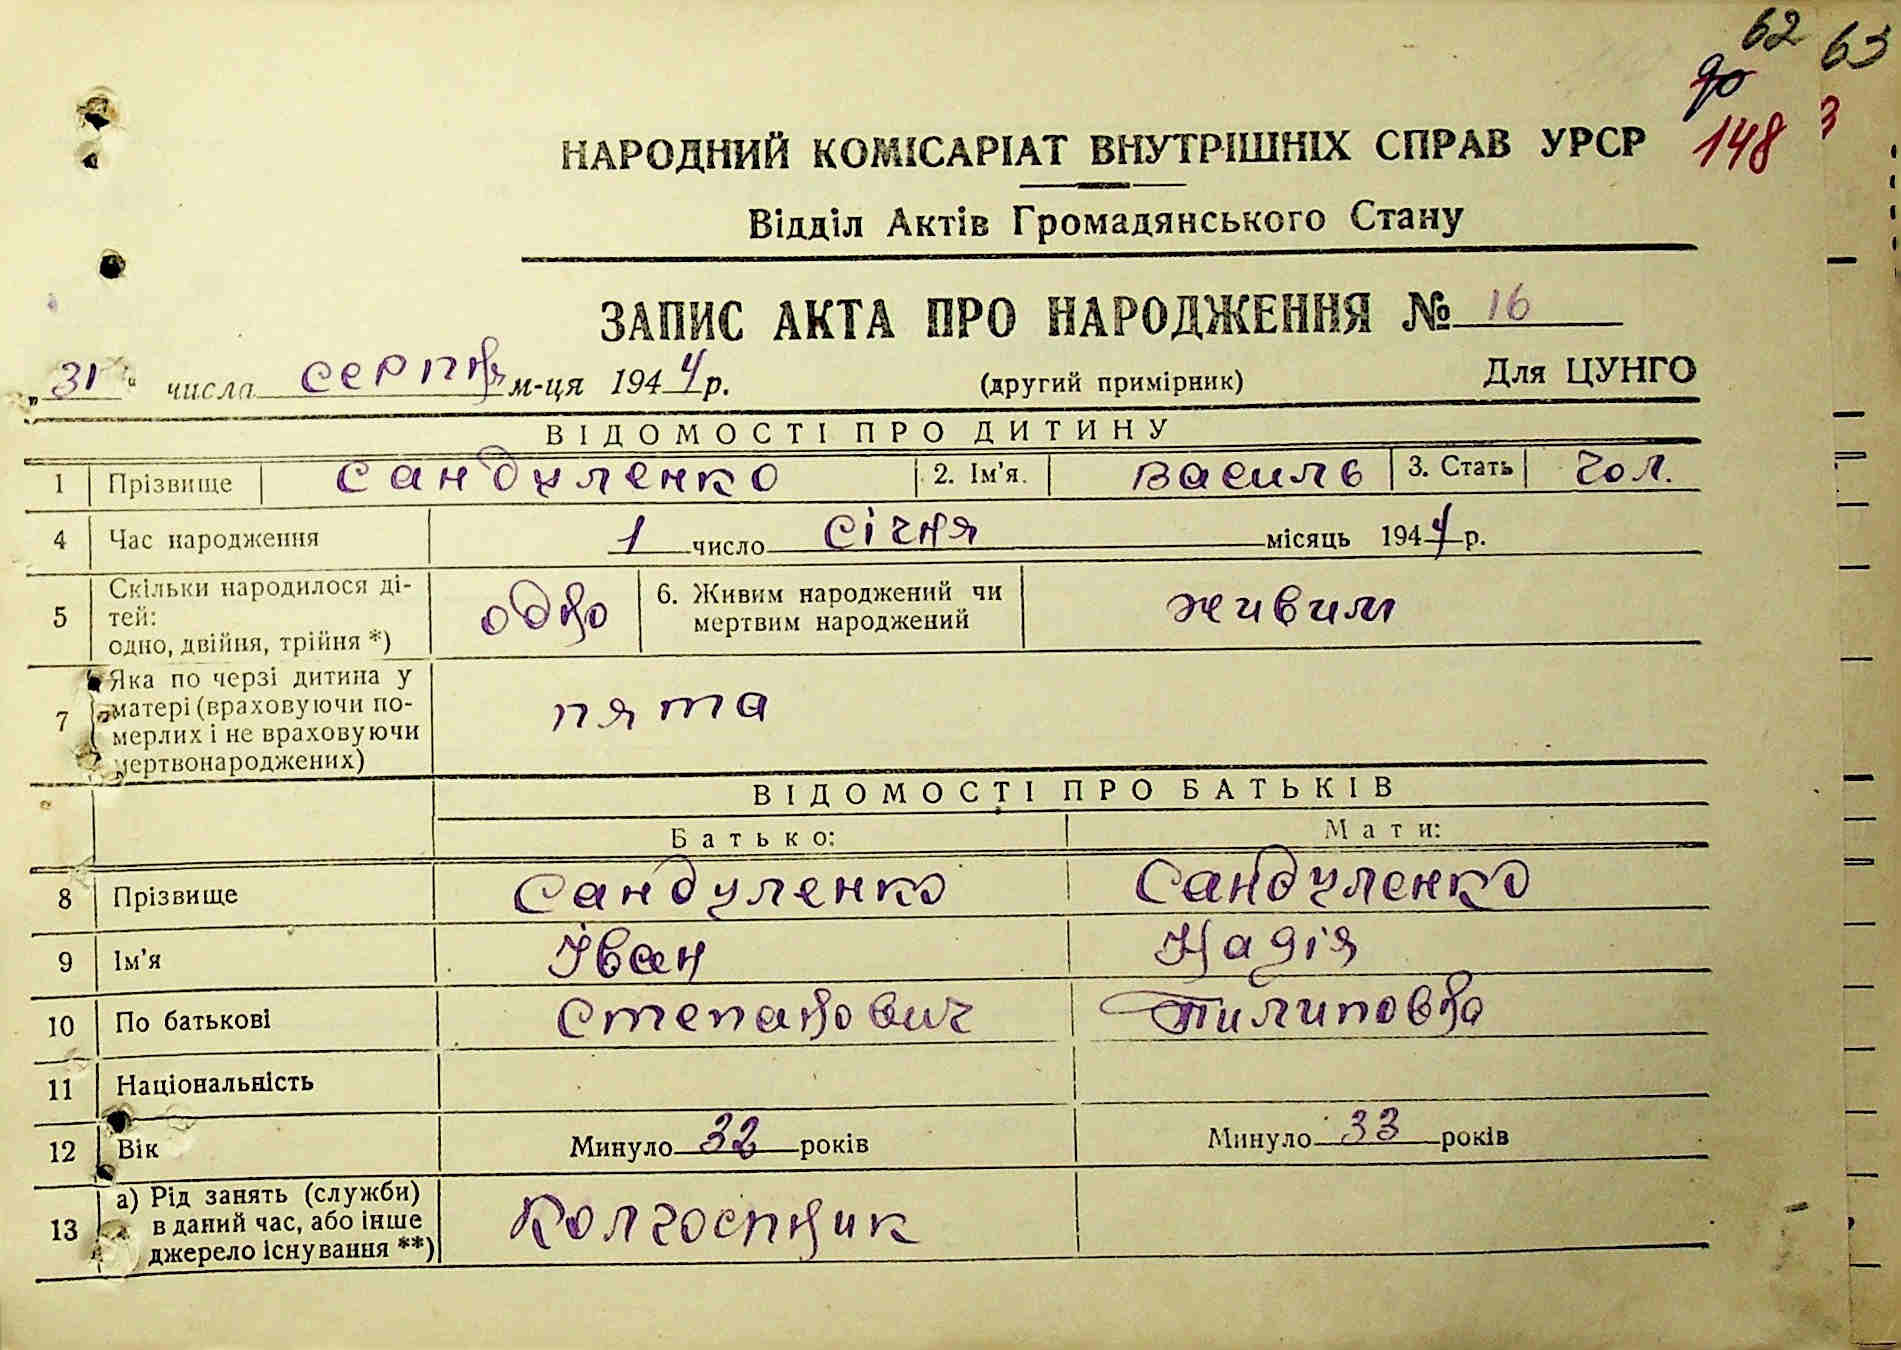 62 63
148 3
НАРОДНИЙ КОМІСАРІАТ ВНУТРІШНІХ СПРАВ УРСР
Відділ Актів Громадянського Стану
ЗАПИС АКТА ПРО НАРОДЖЕННЯ № 16
„31“ числа серпня м-ця 1944 р. (другий примірник) Для ЦУНГО
ВІДОМОСТІ ПРО ДИТИНУ
1 Прізвище Сандуленко 2. Ім'я. Василь 3. Стать Чол.
4 Час народження 1 число Січня місяць 1944 р.
5 Скільки народилося ді-
тей:
одно, двійня, трійня *) одно 6. Живим народжений чи
мертвим народжений живим
7 Яка по черзі дитина у
матері (враховуючи по-
мерлих і не враховуючи
мертвонароджених) пята
ВІДОМОСТІ ПРО БАТЬКІВ
Батько: Мати:
8 Прізвище Сандуленко Сандуленко
9 Ім'я Іван Надія
10 По батькові Степанович Пилиповна
11 Національність
12 Вік Минуло 32 років Минуло 33 років
13 а) Рід занять (служби)
в даний час, або інше
джерело існування **) Колгоспник